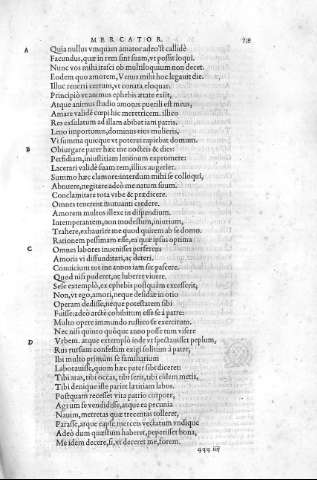 MERCATOR. 718
A Quia nullus vnquam amator adeo'st callidè
Facundus, quæ in rem sint suam, vt possit loqui.
Nunc vos mihi irasci ob multiloquium non decet.
Eodem quo amorem, Venus mihi hoc legauit die.
Illuc reuerti certum, vt conata eloquar.
Principiò vt ex ephebis ætate exiit,
Atque animus studio amotus puerili est meus,
Amare validè cœpi hîc meretricem. ilico
Res exulatum ad illam abibat iam patris.
Leno importunus, dominus eius mulieris,
Vi summa quicque vt poterat rapiebat domum.
B Obiurgare pater hæc me noctes & dies:
Perfidiam, iniustitiam lenonum expromere:
Lacerari validè suam rem, illius augerier.
Summo hæc clamore: interdum mihi se colloqui,
Abnuere, negitare adeò me natum suum.
Conclamitare tota vrbe & prædicere,
Omnes tenerent mutuanti credere.
Amorem multos illexe in dispendium.
Intemperantem, non modestum, iniurium,
Trahere, exhaurire me quod quirem ab se domo.
Rationem pessimam esse, ea quæ ipsus optima
C Omnes labores inuenisset perferens
Amoris vi diffunditari, ac deteri.
Conuicium tot me annos iam se pascere.
Quod nisi puderet, ne luberet viuere.
Sese extemplò, ex ephebis postquàm excesserit,
Non, vt ego, amori, neque desidiæ in otio
Operam dedisse, neque potestatem sibi
Fuisse: adeò arctè cohibitum esse se à patre:
Multo opere immundo rustico se exercitum.
Nec nisi quinto quoque anno posse tum visere
D Vrbem. atque extemplò inde vt spectauisset peplum,
Rus rursum confestim exigi solitum à patre,
Ibi multo primum se familiarium
Laborauisse, quom hæc pater sibi diceret:
Tibi aras, tibi occas, tibi seris, tibi eidem metis,
Tibi denique iste pariet lætitiam labos.
Postquam recesset vita patrio corpore,
Agrum se vendidisse, atque ea pecunia
Nauim, metretas quæ trecentas tolleret,
Parasse, atque ea se merceis vectatum vndique
Adeò dum quæstum haberet, peperisset bona,
Me idem decere, si, vt deceret me, forem.